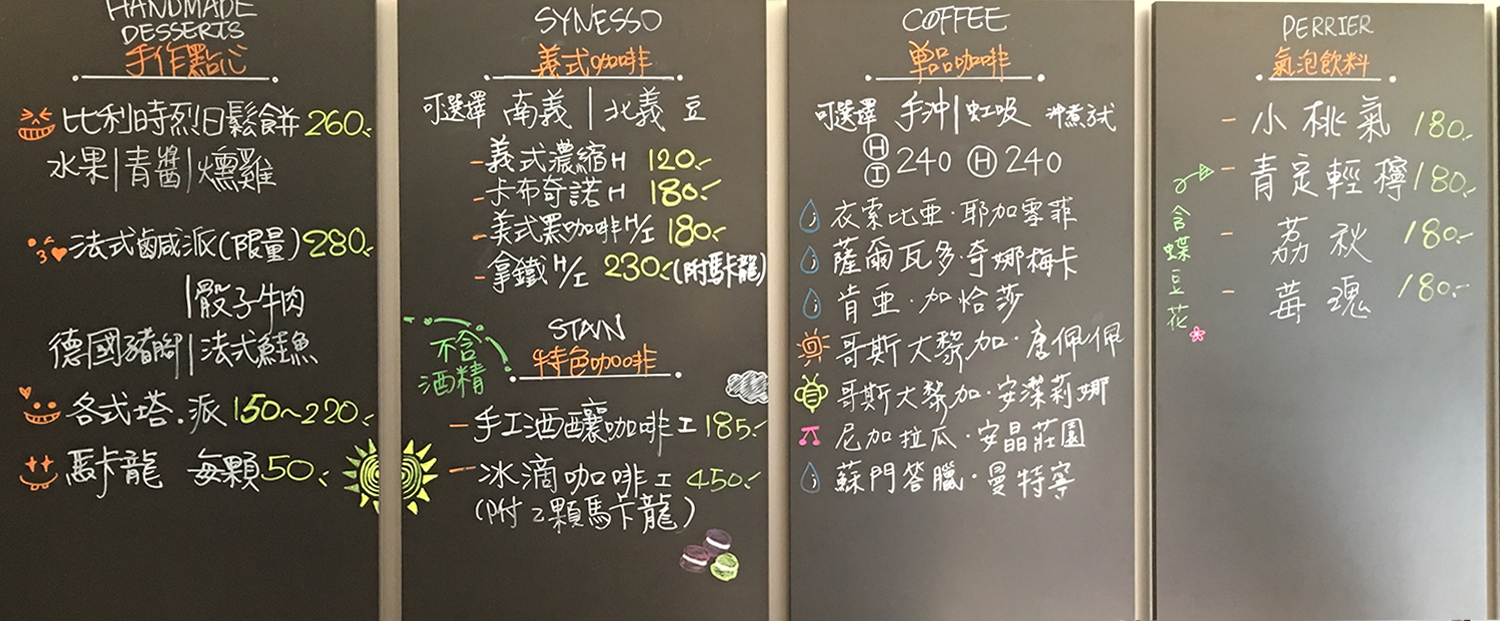 HANDMADE
DESSERTS
手作點心
比利時烈日鬆餅 260.-
水果|青醬|燻雞
法式鹹派(限量) 280.-
|骰子牛肉
德國豬腳|法式鮭魚
各式塔.派 150~220.-
馬卡龍 每顆50.-
SYNESSO
義式咖啡
可選擇 南義|北義 豆
-義式濃縮H 120.-
-卡布奇諾H 180.-
-美式黑咖啡H/I 180.-
-拿鐵H/I 230.-(附馬卡龍)
不含
酒精
STAIN
特色咖啡
-手工酒釀咖啡I 185.-
-冰滴咖啡I 450.-
(附2顆馬卡龍)
COFFEE
單品咖啡
可選擇 手沖|虹吸 沖煮式
H
I 240 H 240
衣索比亞·耶加雪菲
薩爾瓦多·奇娜梅卡
肯亞·加恰莎
哥斯大黎加·唐佩佩
哥斯大黎加·安潔莉娜
尼加拉瓜·安晶莊園
蘇門答臘·曼特寧
PERRIER
氣泡飲料
-小桃氣 180.-
-青定輕檸 180.-
含蝶豆花
-荔秋 180.-
-莓瑰 180.-